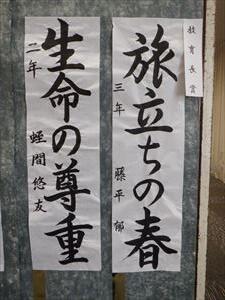 教育長賞
旅立ちの春
三年 藤平 郁
生命の尊重
二年 蛭間悠友